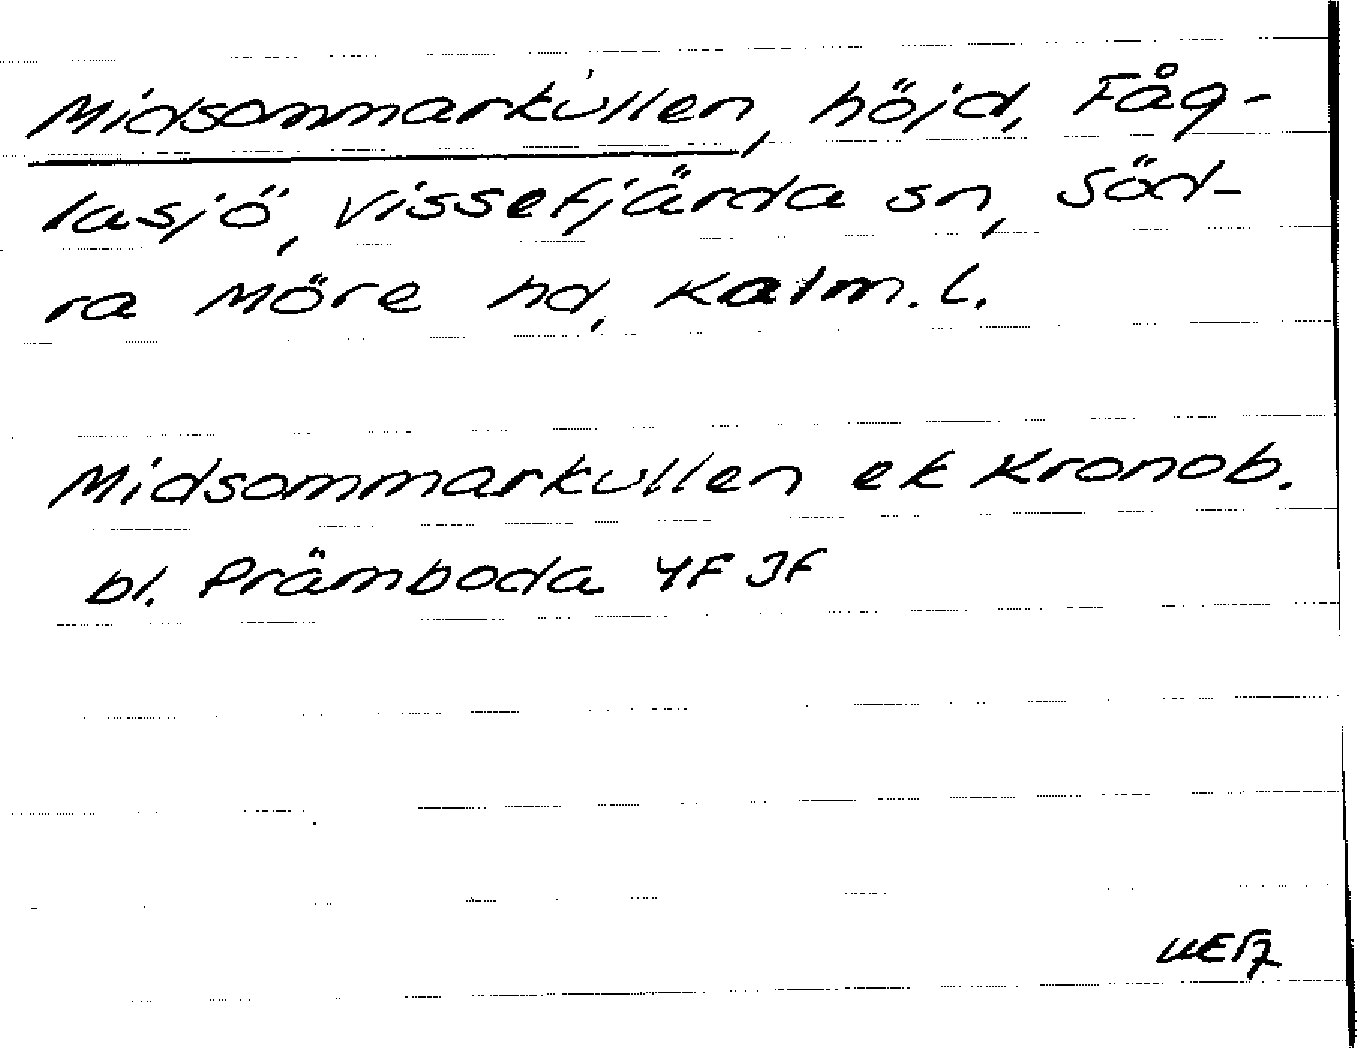 Midsommarkullen, höjd, Fåg-
lasjö, Vissefjärda sn, Söd-
ra Möre hd, Kalm. l.
Midsommarkullen ek Kronob.
bl. Pråmboda 4F JF